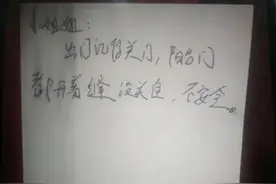 小姐姐：
出门记得关门，阳台门
都开着缝没关上，不安全。